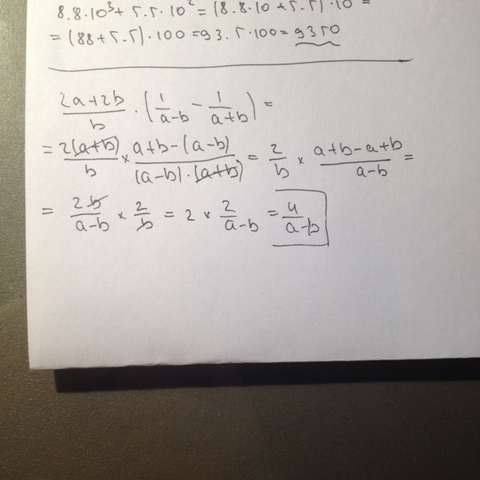 8.8·10³+5.5·10²=(8.8·10+5.5)·10²=
=(88+5.5)·100=93.5·100=9350
(2a+2b)/b · (1/(a-b) - 1/(a+b)) =
= 2(a+b)/b × (a+b-(a-b))/((a-b)·(a+b)) = 2/b × (a+b-a+b)/(a-b) =
= 2b/(a-b) × 2/b = 2 × 2/(a-b) = 4/(a-b)